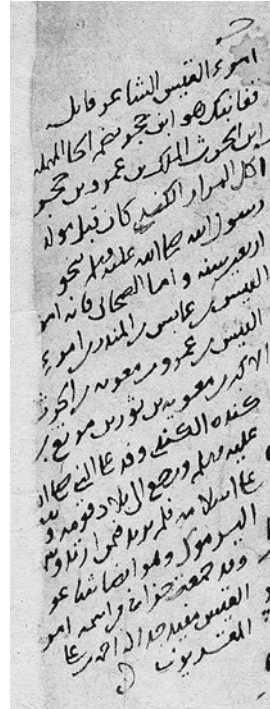 امرء القيس الشاعر قايل
قفا نبك هو ابن حجر بضم الحا المهمله
ابن الحرث الملك بن عمرو بن حجر
اكل المرار الكندي كان قبل مولد
رسول الله صلى الله عليه وسلم بنحو
اربعين سنه واما الصحابي فانه امر
القيس بن عابس بن المنذر بن امرء
القيس بن عمرو بن معويه بن الحرث
الاكبر بن معويه بن ثور بن مرتع بن
كنده الكندي وفد على النبي صلى الله
عليه وسلم ورجع الى بلاد قومه و
على اسلامه فلم يرتد فيمن ارتد و
اليرموك وهو ايضا شاعر
وقد جمعت جزا في اسمه امر
القيس مفيد جدا